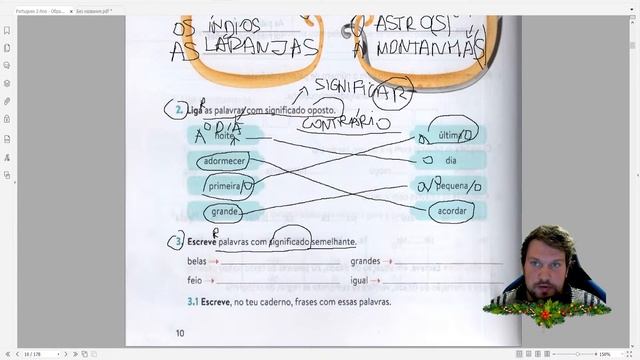 Portugues 2 Ano - Обра...
Без названия.pdf *
OS ÍNDIOS
ASTRO(S)
AS LARANJAS
A MONTANHA(S)
SIGNIFICAR
2. Liga as palavras com significado oposto.
R
CONTRÁRIO
O DIA
A noite
última/o
adormecer
o dia
primeira/o
pequena/o
grande
acordar
R
3. Escreve palavras com significado semelhante.
belas
grandes
feio
igual
3.1 Escreve, no teu caderno, frases com essas palavras.
10
150%